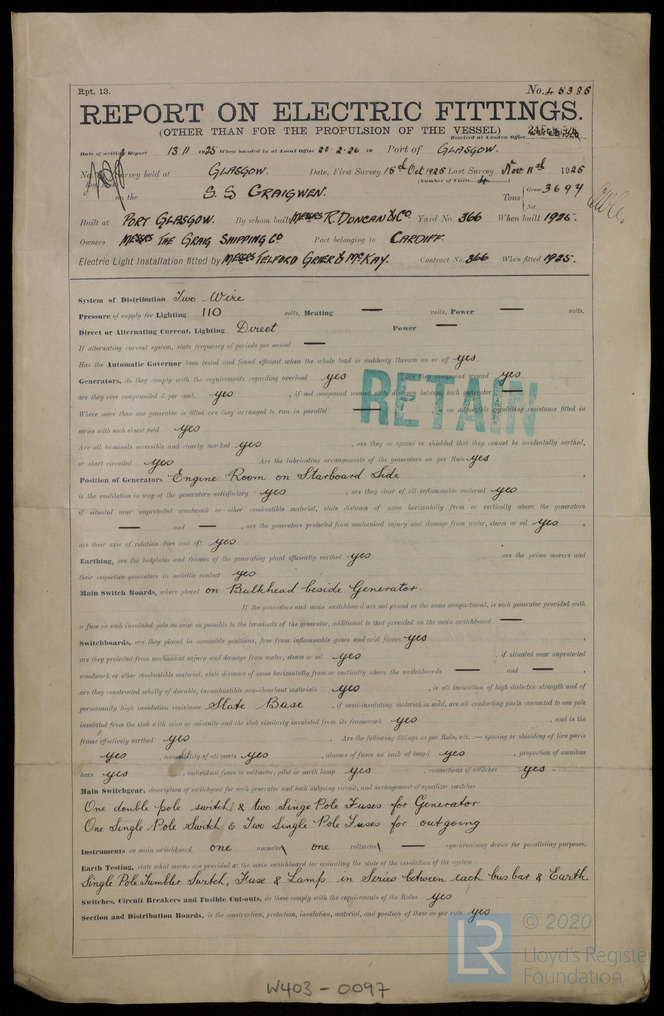 Rpt. 13.
No. 45385
REPORT ON ELECTRIC FITTINGS.
(OTHER THAN FOR THE PROPULSION OF THE VESSEL)
Received at London Office
Date of writing Report 13 11 1925 When handed in at Local Office 20-2-26 19 Port of GLASGOW.
No. Survey held at GLASGOW. Date, First Survey 15th Oct 1925 Last Survey Nov 11th 1925
(Number of Visits 4)
on the S.S CRAIGWEN. Tons Gross 3697
Net
Built at PORT GLASGOW. By whom built MESSRS R. DUNCAN & CO Yard No. 366 When built 1925.
Owners MESSRS THE GRAIG SHIPPING CO Port belonging to CARDIFF.
Electric Light Installation fitted by MESSRS TELFORD GRIER & MCKAY. Contract No. 366 When fitted 1925.
System of Distribution Two Wire
Pressure of supply for Lighting 110 volts, Heating — volts, Power — volts.
Direct or Alternating Current, Lighting Direct Power —
If alternating current system, state frequency of periods per second —
Has the Automatic Governor been tested and found efficient when the whole load is suddenly thrown on or off yes
Generators, do they comply with the requirements regarding overload yes , are they compound wound yes
are they over compounded 5 per cent. yes , if not compound wound state distance between each generator —
Where more than one generator is fitted are they arranged to run in parallel — , is an adjustable regulating resistance fitted in
series with each shunt field yes
Are all terminals accessible and clearly marked yes , are they so spaced or shielded that they cannot be accidentally earthed,
or short circuited yes Are the lubricating arrangements of the generators as per Rule yes
Position of Generators Engine Room on Starboard Side
is the ventilation in way of the generators satisfactory yes , are they clear of all inflammable material yes
if situated near unprotected woodwork or other combustible material, state distance of same horizontally from or vertically above the generators
— and — , are the generators protected from mechanical injury and damage from water, steam or oil yes ,
are their axes of rotation fore and aft yes
Earthing, are the bedplates and frames of the generating plant efficiently earthed yes are the prime movers and
their respective generators in metallic contact yes
Main Switch Boards, where placed on Bulkhead beside Generator.
If the generators and main switchboard are not placed in the same compartment, is each generator provided with
a fuse on each insulated pole as near as possible to the terminals of the generator, additional to that provided on the main switchboard —
Switchboards, are they placed in accessible positions, free from inflammable gases and acid fumes yes
are they protected from mechanical injury and damage from water, steam or oil yes , if situated near unprotected
woodwork or other combustible material, state distance of same horizontally from or vertically above the switchboards — and — ,
are they constructed wholly of durable, incombustible non-absorbent materials yes , is all insulation of high dielectric strength and of
permanently high insulation resistance Slate Base , if semi-insulating material is used, are all conducting parts connected to one pole
insulated from the slab with mica or micanite and the slab similarly insulated from its framework yes , and is the
frame effectively earthed yes . Are the following fittings as per Rule, viz. — spacing or shielding of live parts
yes , accessibility of all parts yes , absence of fuses on back of board yes , proportion of omnibus
bars yes , individual fuses to voltmeter, pilot or earth lamp yes , connections of switches yes .
Main Switchgear, description of switchgear for each generator and each outgoing circuit, and arrangement of equalizer switches
One double pole switch & two Singe Pole Fuses for Generator
One Single Pole Switch & Two Single Pole Fuses for outgoing
Instruments on main switchboard one ammeter one voltmeter — synchronising device for paralleling purposes.
Earth Testing, state what means are provided at the main switchboard for indicating the state of the insulation of the system
Single Pole Tumbler Switch, Fuse & Lamp in Series between each bus bar & Earth.
Switches, Circuit Breakers and Fusible Cut-outs, do these comply with the requirements of the Rules yes
Section and Distribution Boards, is the construction, protection, insulation, material, and position of these as per rule yes
RETAIN
© 2020
LR
Lloyd's Register
Foundation
W403-0097